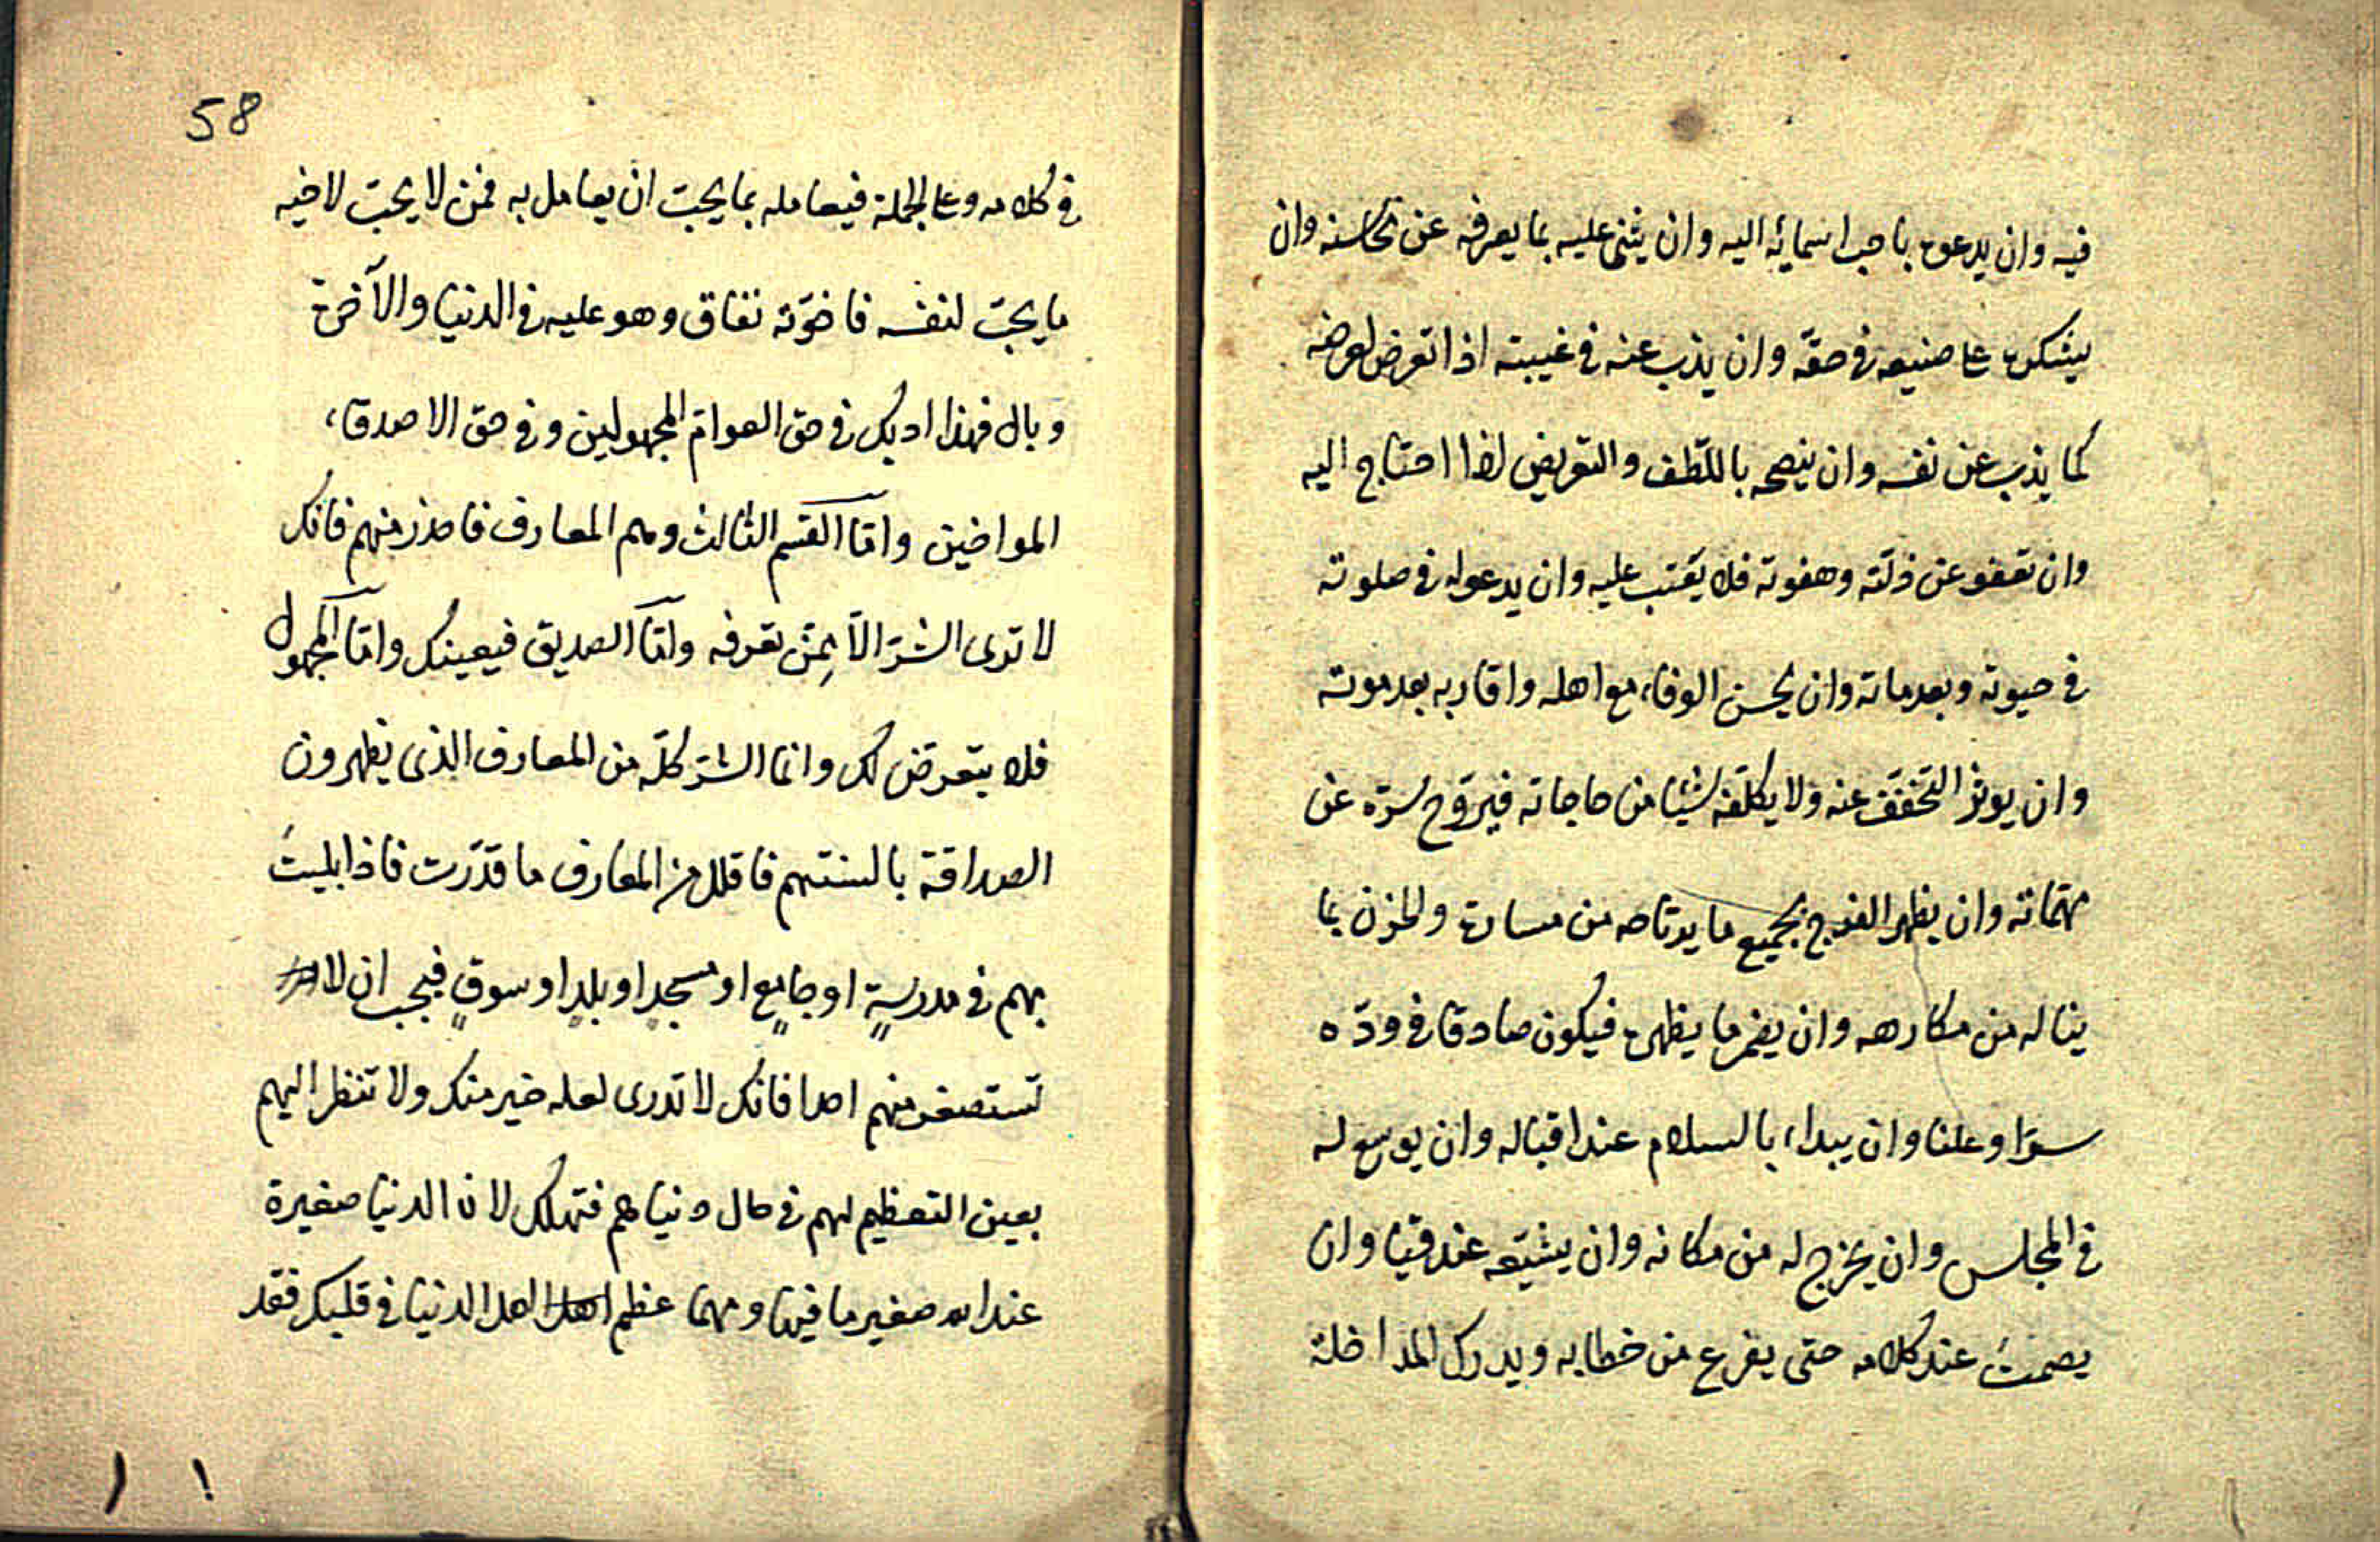 فيه وان يدعوه باحب اسمائه اليه وان يثنى عليه بما يعرفه عن محاسنه وان
يشكره على صنيعه في حقه وان يذب عنه في غيبته اذا تعرض لعرضه
كما يذب عن نفسه وان ينصحه باللطف والتعريض اذا احتاج اليه
وان تعفو عن زلته وهفوته فلا يعتب عليه وان يدعو له في صلوته
في حيوته وبعد مماته وان يحسن الوفاء مع اهله واقاربه بعد موته
وان يوثر التخفف عنه ولا يكلفه شيئا من حاجاته فيروح سره عن
مهماته وان يظهر الفرح بجميع ما يرتاحه من مساره والحزن بما
يناله من مكارهه وان يضمر ما يظهره فيكون صادقا في وده
سرا وعلنا وان يبداء بالسلام عند اقباله وان يوسع له
في المجلس وان يخرج له من مكانه وان يشيعه عند وان
يصمت عند كلامه حتى يفرغ من خطابه ويدرك المداخلة
58
في كلامه وعلى الجملة فيعامله بما يحب ان يعامل به فمن لا يحب لاخيه
ما يحب لنفسه فاخوته نفاق وهو عليه في الدنيا والآخرة
وبال فهذا ادبك في حق العوام المجهولين وفي حق الاصدقاء
المواخين واما القسم الثالث وهم المعارف فاحذر منهم فانك
لا ترى الشر الا ممن تعرفه واما الصديق فيعينك واما المجهول
فلا يتعرض لك وانما الشر كله من المعارف الذى يظهرون
الصداقة بالسنتهم فاقلل من المعارف ما قدرت فاذا بليت
بهم في مدرسة او جامع او مسجد او بلد او سوق فيجب ان لا
تستصغر منهم احدا فانك لا تدرى لعله خير منك ولا تنظر اليهم
بعين التعظيم لهم في حال دنياهم فتهلك لان الدنيا صغيرة
عند الله صغير ما فيها ومهما عظم اهل الدنيا في قلبك فقد